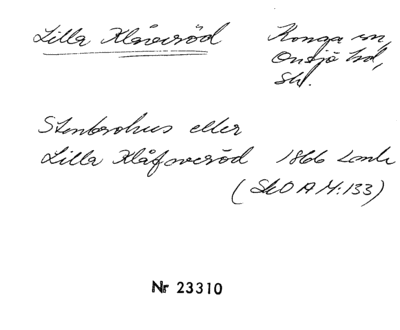 Lilla Klåveröd
Konga sn,
Onsjö hd,
Sk.
Stenbrohus eller
Lilla Klåfveröd 1866 Lantm
(SkO A M:133)
Nr 23310